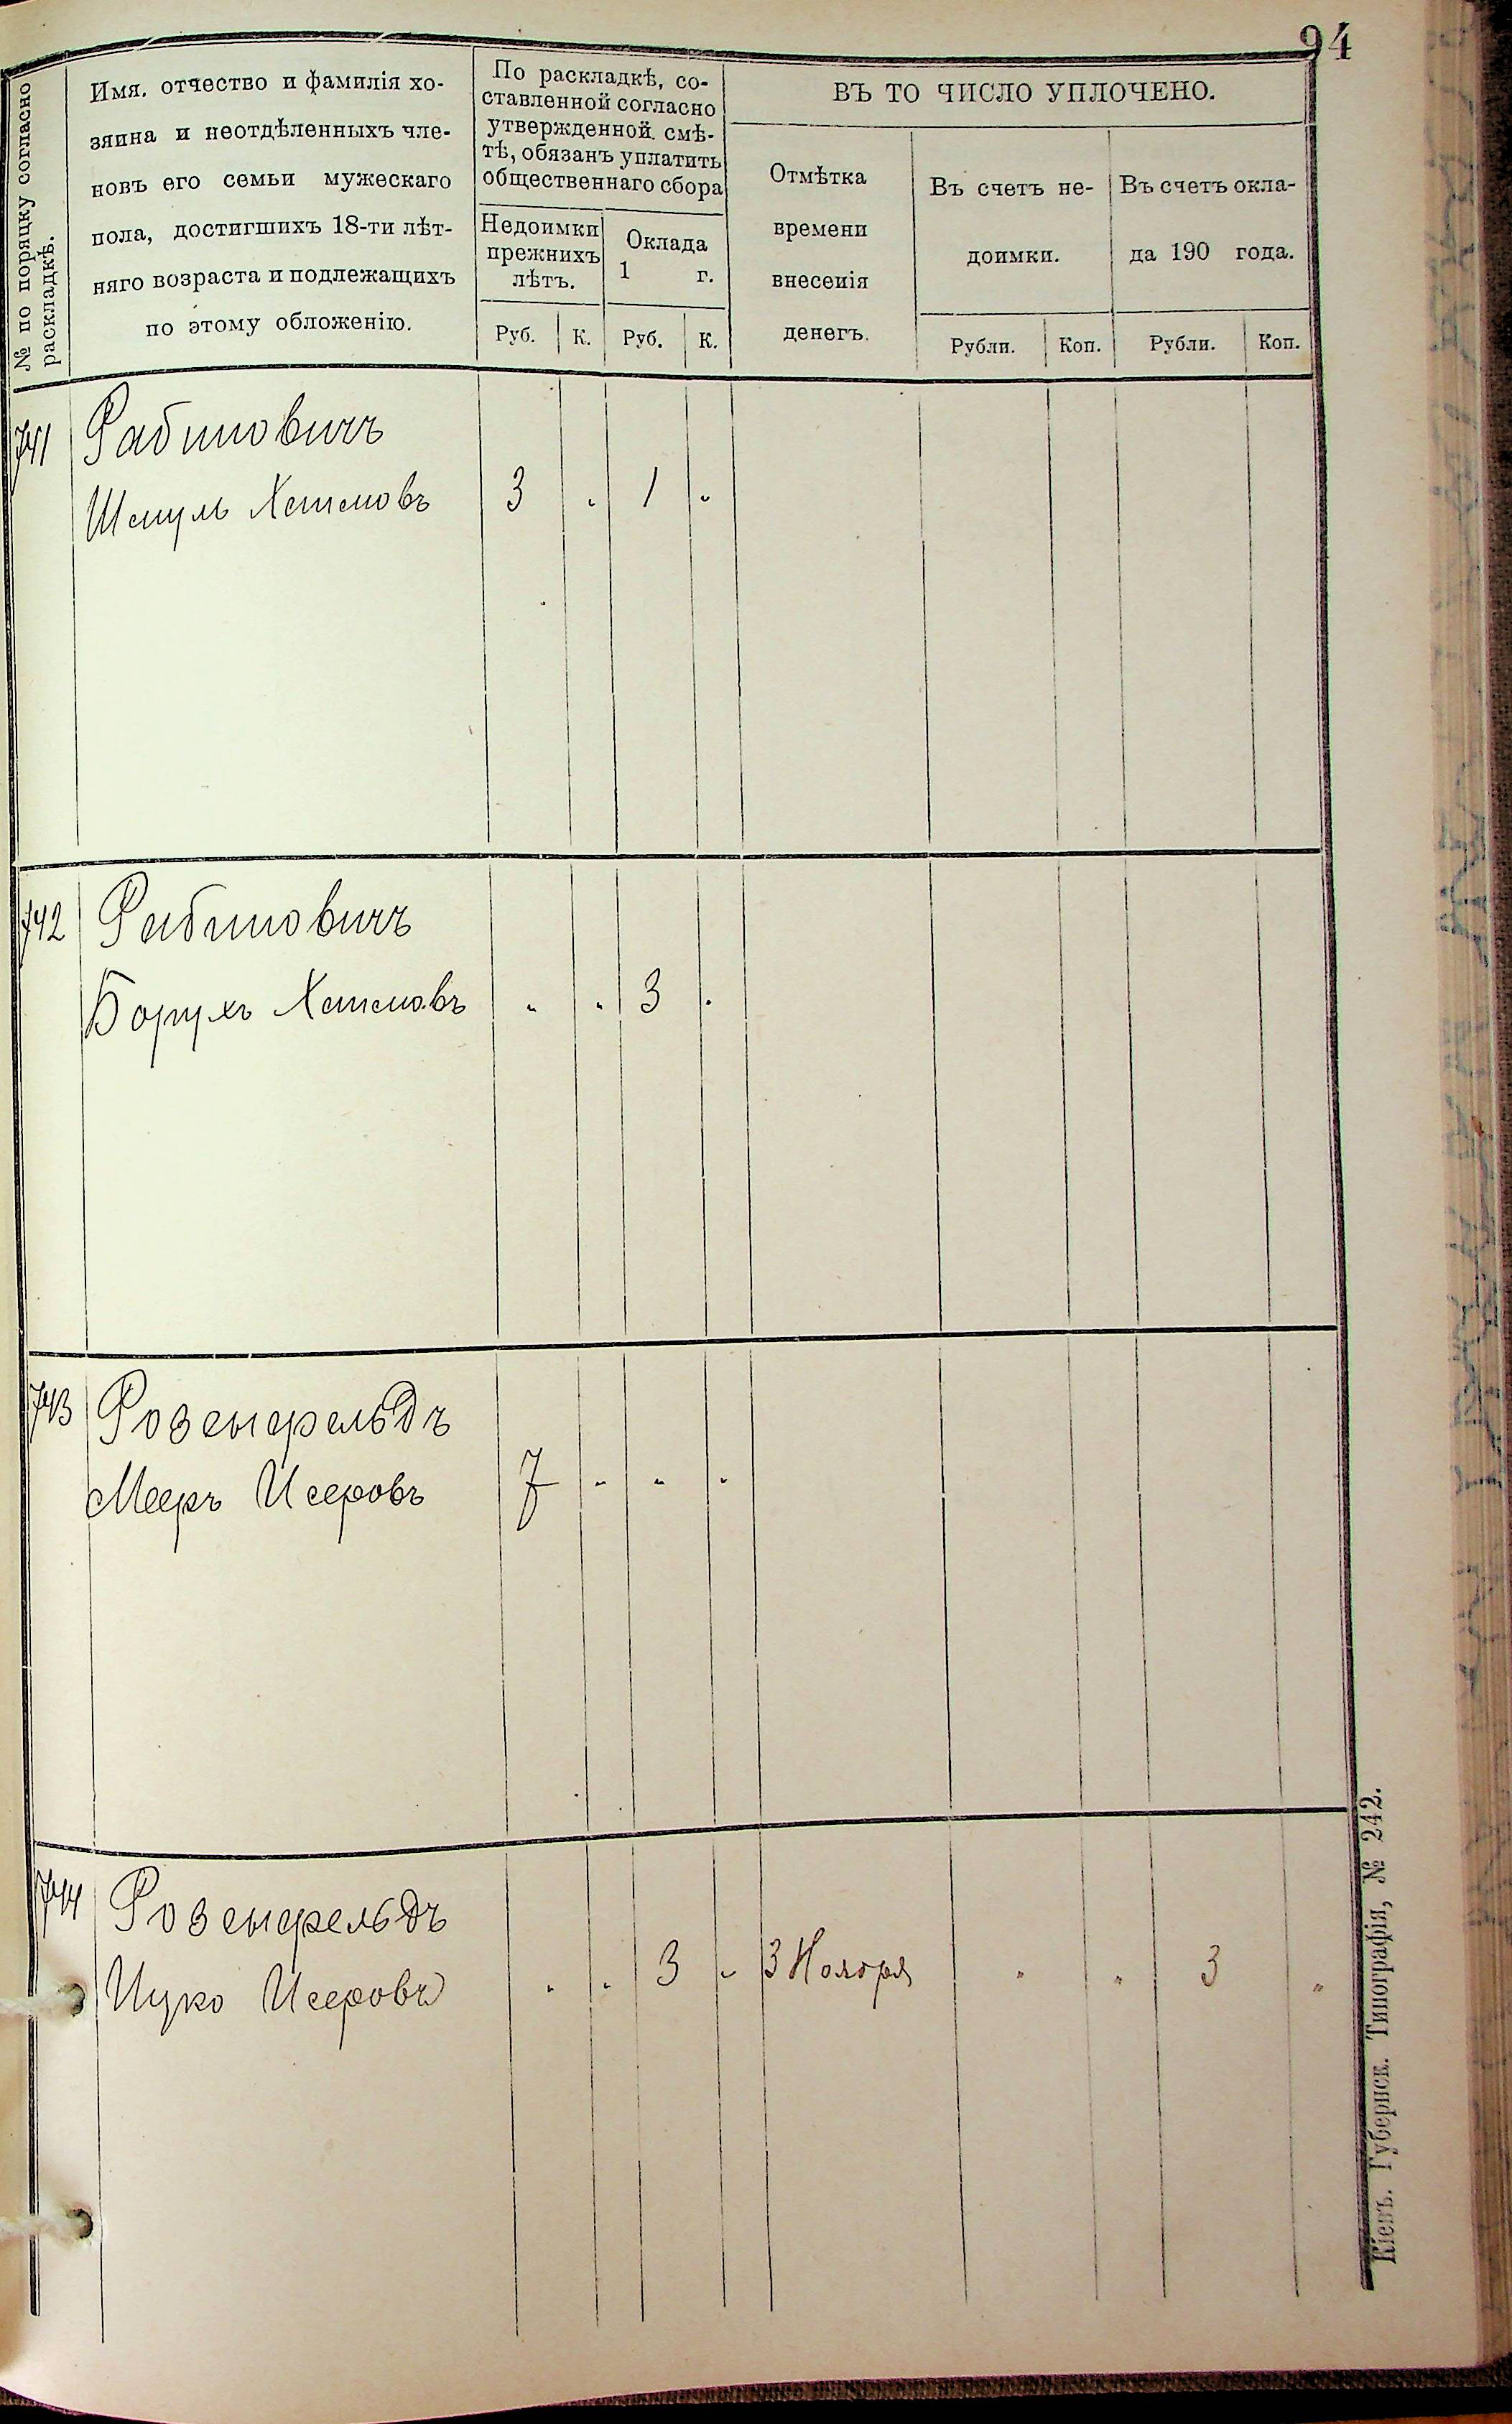 94
№ по порядку согласно
раскладкѣ.
Имя, отчество и фамилія хо-
зяина и неотдѣленныхъ чле-
новъ его семьи мужескаго
пола, достигшихъ 18-ти лѣт-
няго возраста и подлежащихъ
по этому обложенію.
По раскладкѣ, со-
ставленной согласно
утвержденной смѣ-
тѣ, обязанъ уплатить
общественнаго сбора
Недоимки
прежнихъ
лѣтъ.
Оклада
1 г.
Руб. К. Руб. К.
ВЪ ТО ЧИСЛО УПЛОЧЕНО.
Отмѣтка
времени
внесенія
денегъ.
Въ счетъ не-
доимки.
Въ счетъ окла-
да 190 года.
Рубли. Коп. Рубли. Коп.
741 Рабиновичъ
Шмуль 3 „ 1 „
742 Рабиновичъ
Борухъ „ „ 3 „
743 Розенфельдъ
Мееръ Исеровъ 7 „ „ „
744 Розенфельдъ
Ицко Исеровъ „ „ 3 „ 3 Ноября „ „ 3 „
Кіевъ. Губернск. Типографія, № 242.